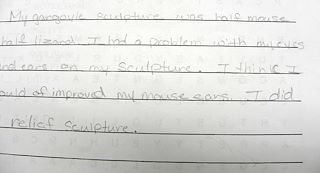 My gargoyle sculpture was half mouse
half lizard I had a problem with my eyes
and ears on my sculpture. I think I
ould of improved my mouse ears. I did
relief sculpture.